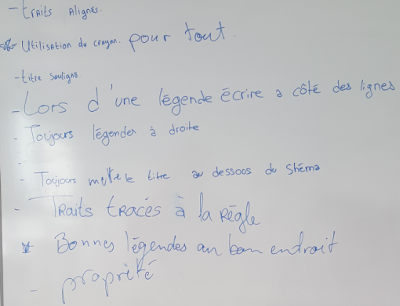 - traits alignés.
* Utilisation du crayon. pour tout.
- titre souligné
- Lors d'une légende écrire a côté des lignes
- Toujours légendes à droite
-
- Toujours mettre le titre au dessous du shéma
- Traits tracés à la Règle
* Bonnes légendes au bon endroit
- propriété